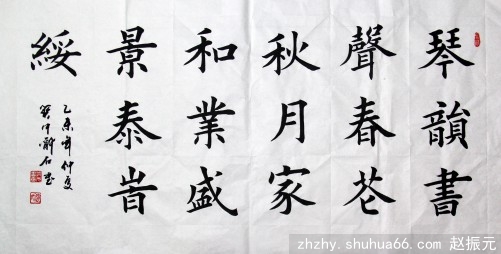 琴韻書
聲春花
秋月家
和業盛
景泰旹
綏
乙未年仲夏
zhzhy.shuhua66.com 赵振元